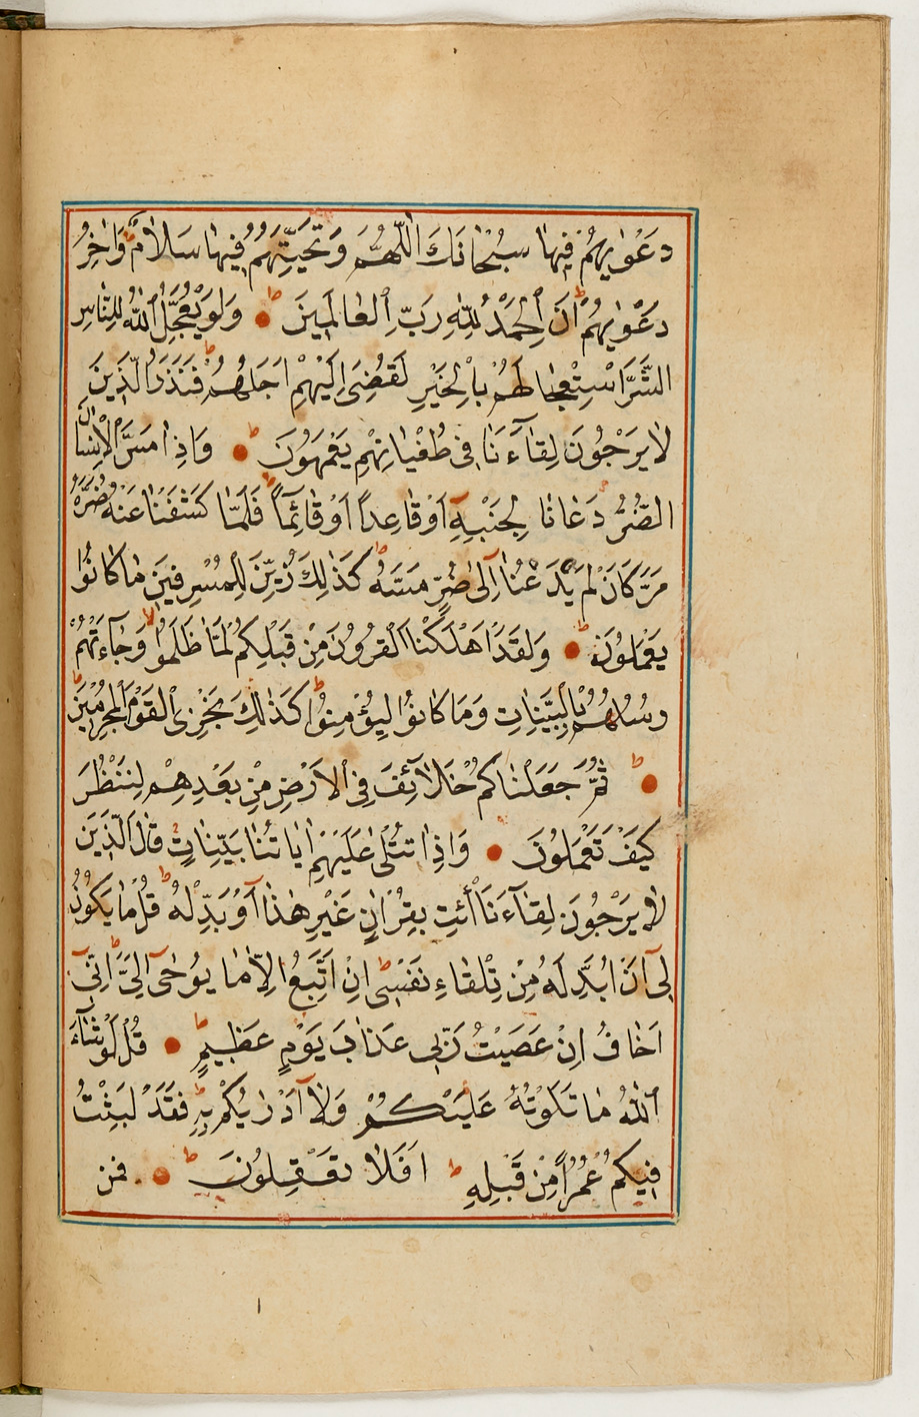 دَعْوٰيهُمْ فِيهَا سُبْحَانَكَ اللّٰهُمَّ وَتَحِيَّتُهُمْ فِيهَا سَلَامٌ وَاٰخِرُ
دَعْوٰيهُمْ اَنَ الْحَمْدُ لِلّٰهِ رَبِّ الْعَالَمِينَ وَلَوْ يُعَجِّلُ اللّٰهُ لِلنَّاسِ
الشَّرَّ اسْتِعْجَالَهُمْ بِالْخَيْرِ لَقُضِىَ اِلَيْهِمْ اَجَلُهُمْ فَنَذَرُ الَّذِينَ
لَا يَرْجُونَ لِقَاۤءَنَا فِى طُغْيَانِهِمْ يَعْمَهُونَ وَاِذَا مَسَّ الْاِنْسَانَ
الضُّرُّ دَعَانَا لِجَنْبِهِ اَوْ قَاعِداً اَوْ قَائِمًا فَلَمَّا كَشَفْنَا عَنْهُ ضُرَّهُ
مَرَّ كَانَ لَمْ يَدْعُنَا اِلٰى ضُرٍّ مَسَّهُ كَذٰلِكَ زُيِّنَ لِلْمُسْرِفِينَ مَا كَانُوا
يَعْمَلُونَ وَلَقَدْ اَهْلَكْنَا الْقُرُونَ مِنْ قَبْلِكُمْ لَمَّا ظَلَمُوا وَجَاۤءَتْهُمْ
رُسُلُهُمْ بِالْبَيِّنَاتِ وَمَا كَانُوا لِيُؤْمِنُوا كَذٰلِكَ نَجْزِى الْقَوْمَ الْمُجْرِمِينَ
ثُمَّ جَعَلْنَاكُمْ خَلَاۤئِفَ فِى الْاَرْضِ مِنْ بَعْدِهِمْ لِنَنْظُرَ
كَيْفَ تَعْمَلُونَ وَاِذَا تُتْلٰى عَلَيْهِمْ اٰيَاتُنَا بَيِّنَاتٍ قَالَ الَّذِينَ
لَا يَرْجُونَ لِقَاۤءَنَا ائْتِ بِقُرْاٰنٍ غَيْرِ هٰذَا اَوْ بَدِّلْهُ قُلْ مَا يَكُونُ
لِى اَنْ اُبَدِّلَهُ مِنْ تِلْقَاءِ نَفْسِى اِنْ اَتَّبِعُ اِلَّا مَا يُوحٰى اِلَىَّ اِنِّى
اَخَافُ اِنْ عَصَيْتُ رَبِّى عَذَابَ يَوْمٍ عَظِيمٍ قُلْ لَوْ شَاۤءَ
اللّٰهُ مَا تَلَوْتُهُ عَلَيْكُمْ وَلَا اَدْرٰيكُمْ بِهِ فَقَدْ لَبِثْتُ
فِيكُمْ عُمُرًا مِنْ قَبْلِهِ اَفَلَا تَعْقِلُونَ فمن